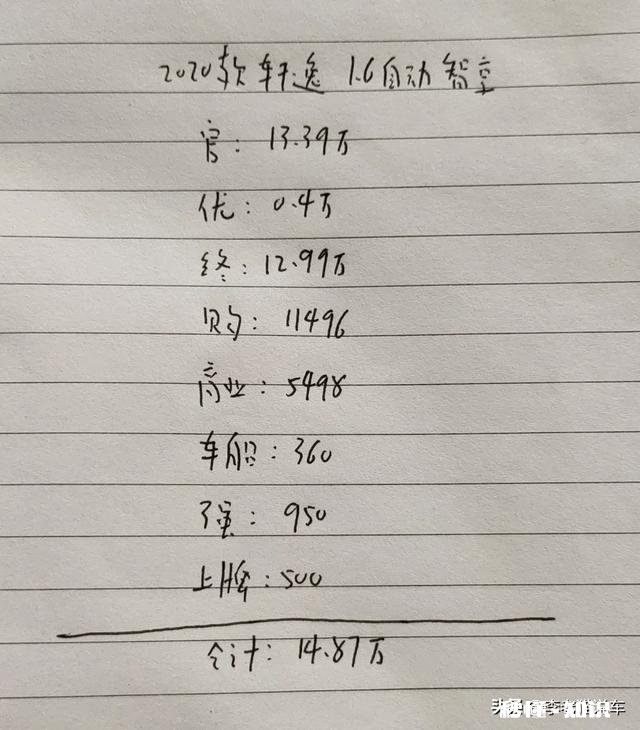 2020款轩逸 1.6自动智享
官: 13.39万
优: 0.4万
终: 12.99万
购: 11496
商业: 5498
车船: 360
强: 950
上牌: 500
合计: 14.87万